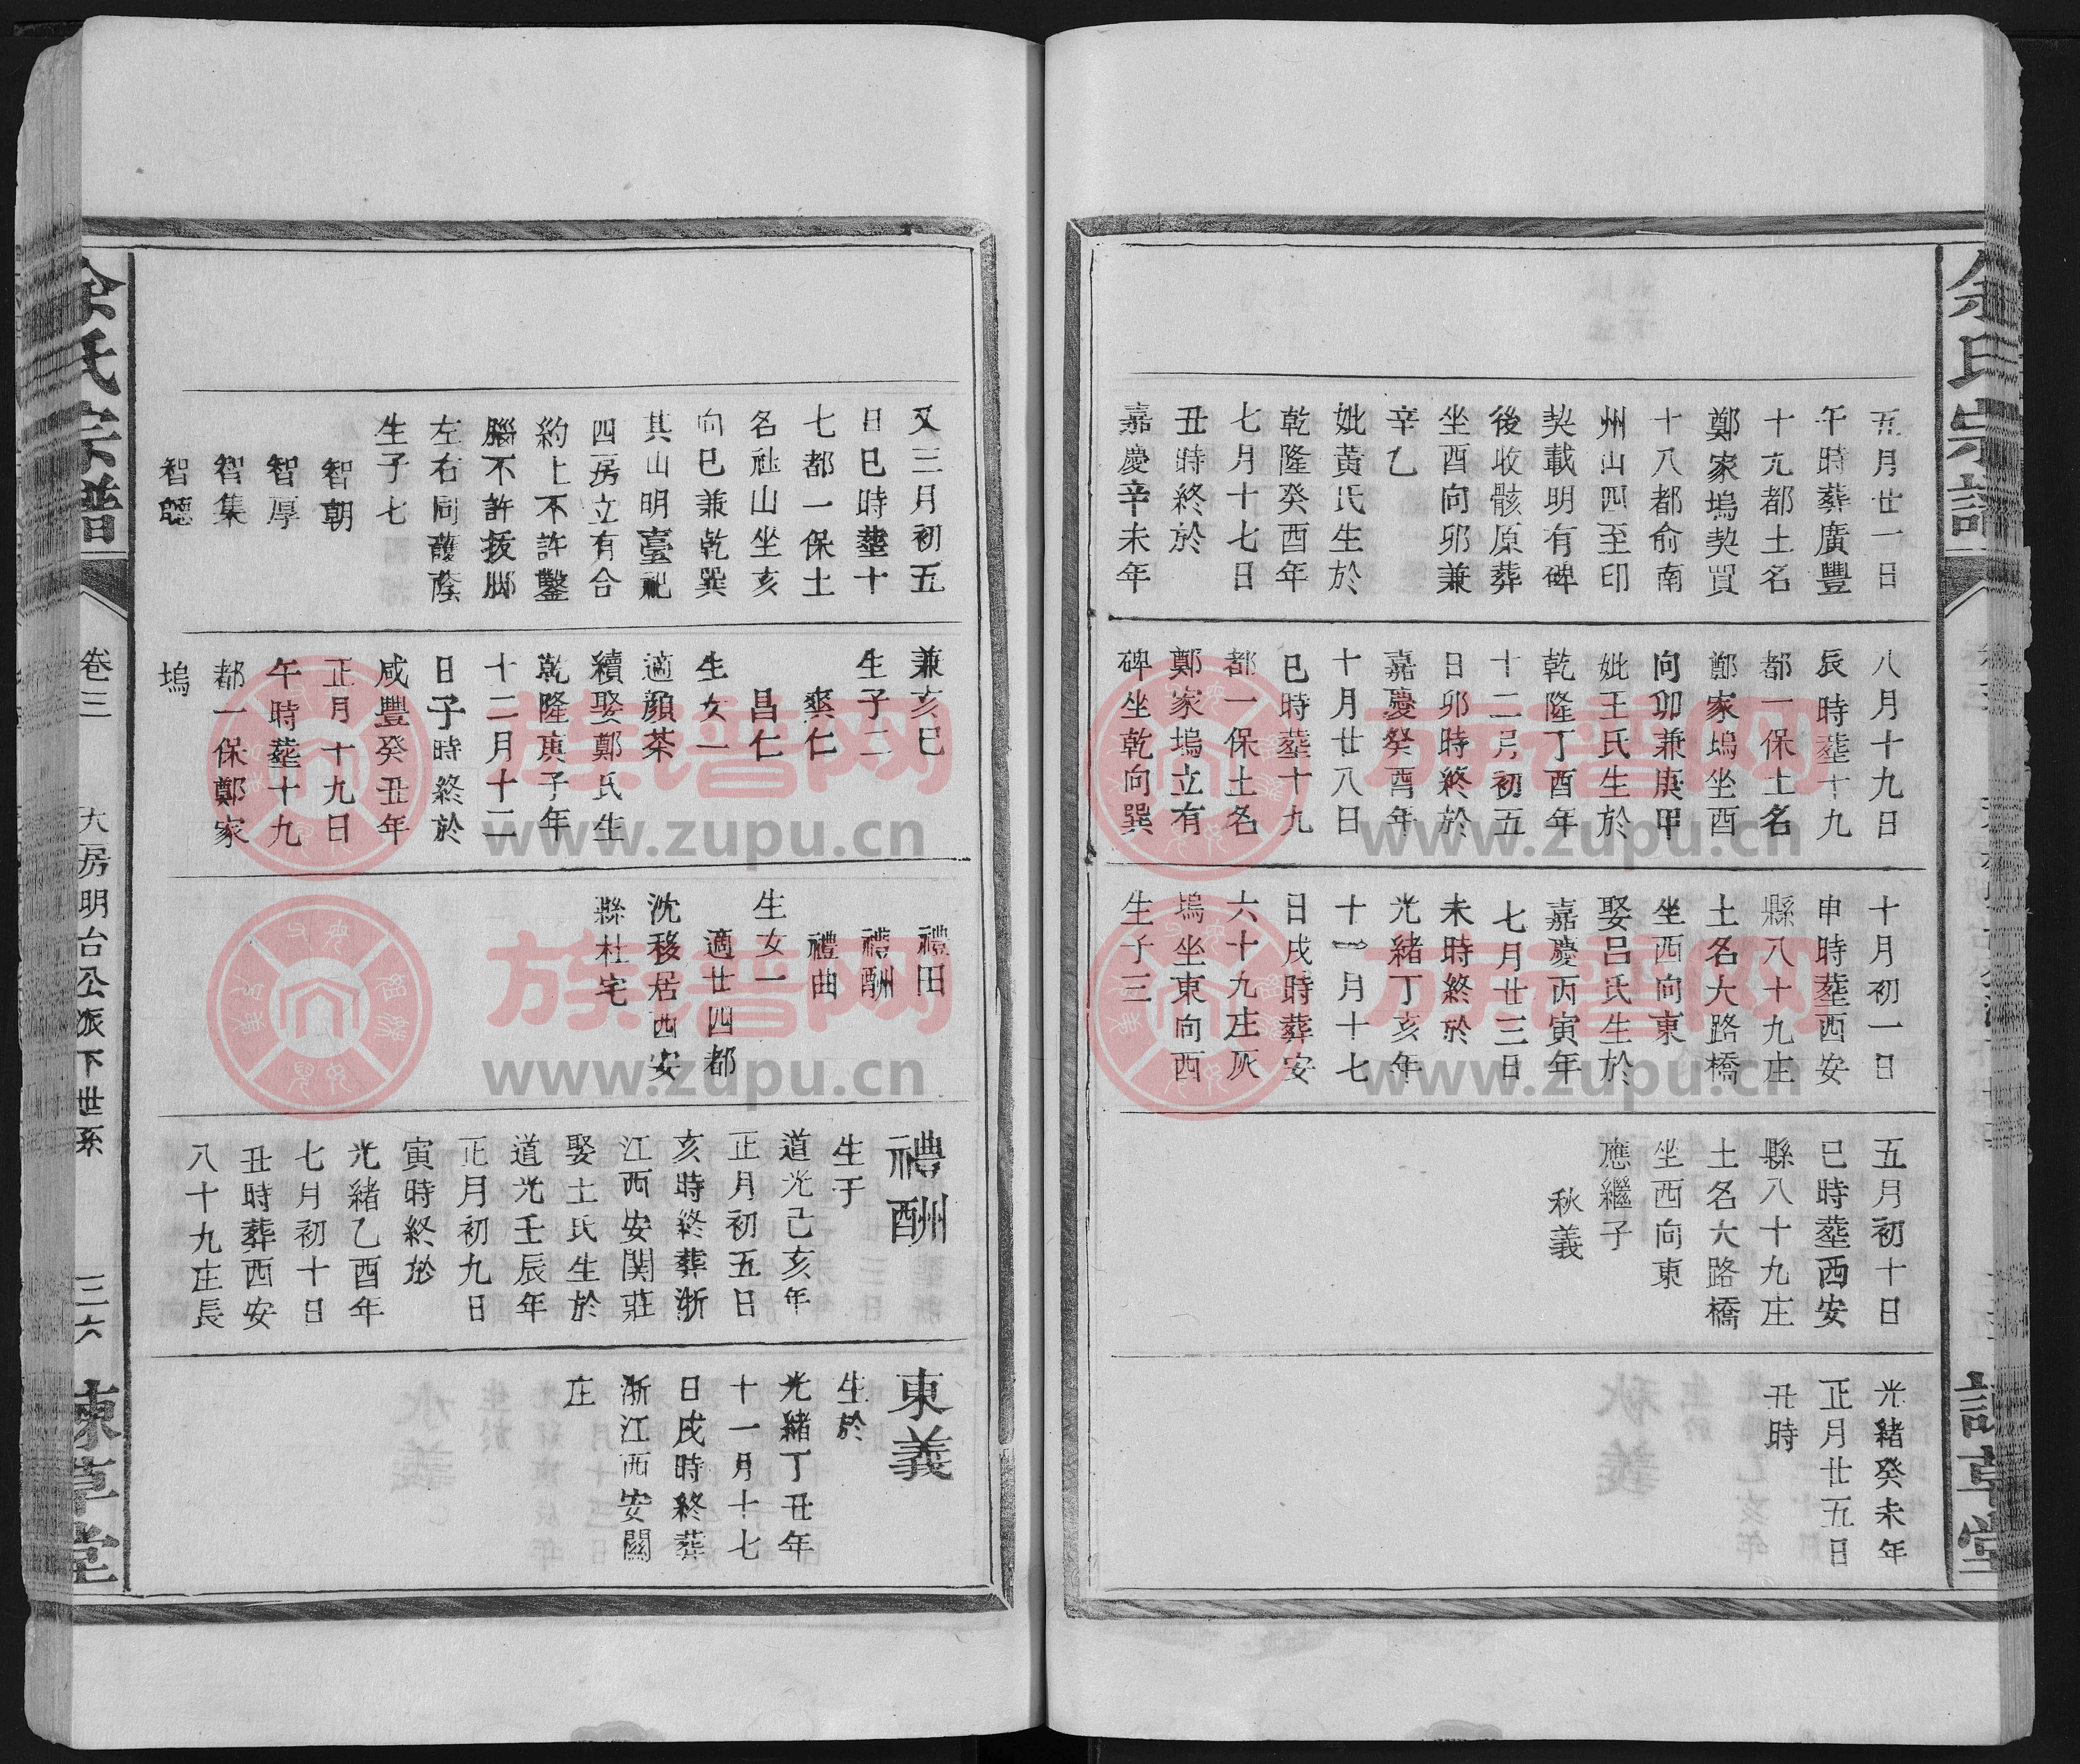 五月廿一日
午時葬廣豐
十九都土名
鄭家塢契買
十八都俞南
州山四至印
契載明有碑
後收骸原葬
坐酉向卯兼
辛乙
妣黃氏生於
乾隆癸酉年
七月十七日
丑時終於
嘉慶辛未年
八月十九日
辰時塟十九
都一保土名
鄭家塢坐酉
向卯兼庚甲
妣王氏生於
乾隆丁酉年
十二月初五
日卯時終於
嘉慶癸酉年
十月廿八日
巳時塟十九
都一保土名
鄭家塢立有
碑坐乾向巽
十月初一日
申時塟西安
縣八十九庄
土名大路橋
坐西向東
娶呂氏生於
嘉慶丙寅年
七月廿三日
未時終於
光緒丁亥年
十一月十七
日戌時葬安
六十九庄灰
塢坐東向西
生子三
五月初十日
巳時塟西安
縣八十九庄
土名大路橋
坐西向東
應繼子
秋義
光緒癸未年
正月廿五日
丑時
又三月初五
日巳時塟十
七都一保土
名社山坐亥
向巳兼乾巽
其山明臺祀
四房立有合
約上不許鑿
腦不許拔脚
左右同護蔭
生子七
智朝
智厚
智集
智聽
兼亥巳
生子二
爽仁
昌仁
生女一
適顏茶
續娶鄭氏生
乾隆庚子年
十二月十二
日子時終於
咸豐癸丑年
正月十九日
午時塟十九
都一保鄭家
塢
禮田
禮酬
禮曲
生女一
適廿四都
沈移居西安
縣杜宅
禮酬
生于
道光己亥年
正月初五日
亥時終葬浙
江西安関莊
娶士氏生於
道光壬辰年
正月初九日
寅時終於
光緒乙酉年
七月初十日
丑時葬西安
八十九庄長
東義
生於
光緒丁丑年
十一月十七
日戌時終葬
浙江西安關
庄
余氏宗譜
卷三
大房明台公派下世系
三六
諫草堂
族谱网
www.zupu.cn
族谱网
www.zupu.cn
族谱网
www.zupu.cn
族谱网
www.zupu.cn